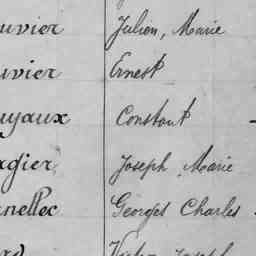 uvier Julien, Marie
uvier Ernest
uyaux Constant
gier Joseph, Marie
nellec Georges Charles
Joseph